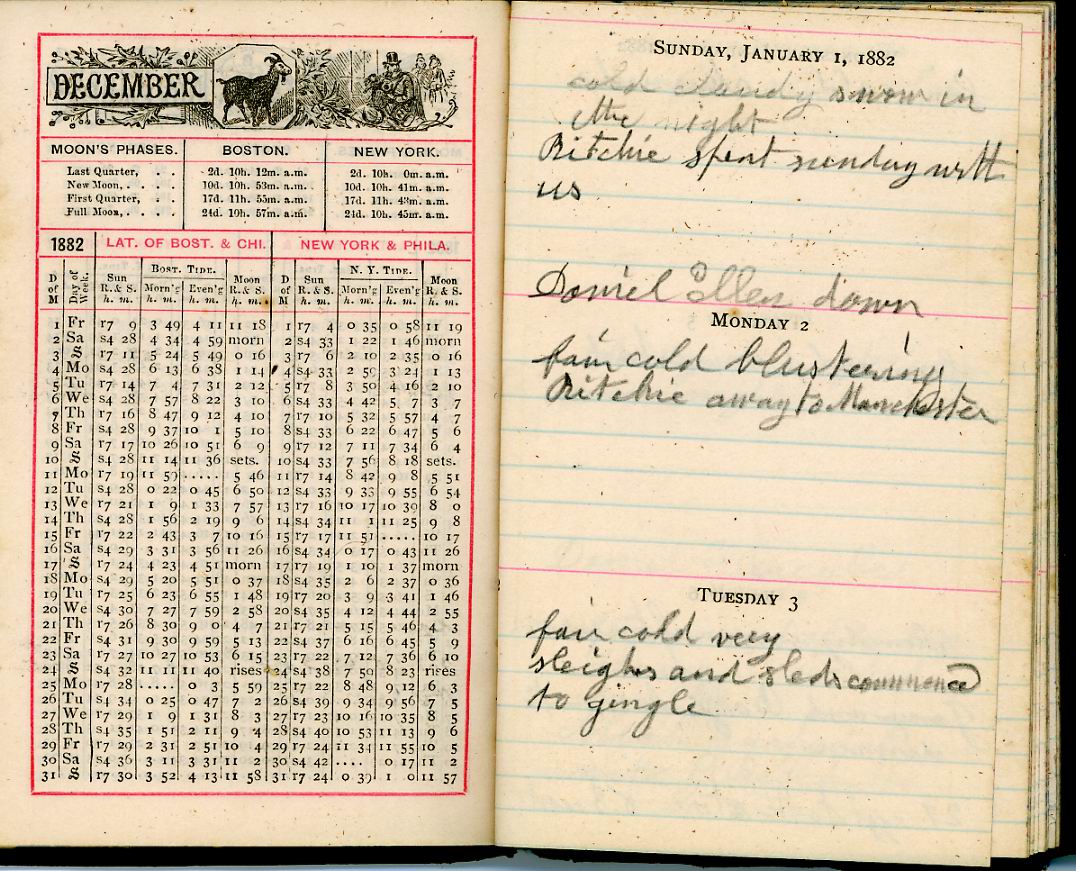 DECEMBER
MOON'S PHASES. BOSTON. NEW YORK.
Last Quarter, . . 2d. 10h. 12m. a.m. 2d. 10h. 0m. a.m.
New Moon, . . . . 10d. 10h. 53m. a.m. 10d. 10h. 41m. a.m.
First Quarter, . . 17d. 11h. 55m. a.m. 17d. 11h. 43m. a.m.
Full Moon, . . . . 24d. 10h. 57m. a.m. 24d. 10h. 45m. a.m.
1882 LAT. OF BOST. & CHI. NEW YORK & PHILA.
D of M Day of Week. Sun R. & S. h. m. BOST. TIDE. Morn'g h. m. Even'g h. m. Moon R. & S. h. m. D of M Sun R. & S. h. m. N. Y. TIDE. Morn'g h. m. Even'g h. m. Moon R. & S. h. m.
1 Fr r7 9 3 49 4 11 11 18 1 r7 4 0 35 0 58 11 19
2 Sa s4 28 4 34 4 59 morn 2 s4 33 1 22 1 46 morn
3 S r7 11 5 24 5 49 0 16 3 r7 6 2 10 2 35 0 16
4 Mo s4 28 6 13 6 38 1 14 4 s4 33 2 59 3 24 1 13
5 Tu r7 14 7 4 7 31 2 12 5 r7 8 3 50 4 16 2 10
6 We s4 28 7 57 8 22 3 10 6 s4 33 4 42 5 7 3 7
7 Th r7 16 8 47 9 12 4 10 7 r7 10 5 32 5 57 4 7
8 Fr s4 28 9 37 10 1 5 10 8 s4 33 6 22 6 47 5 6
9 Sa r7 17 10 26 10 51 6 9 9 r7 12 7 11 7 34 6 4
10 S s4 28 11 14 11 36 sets. 10 s4 33 7 56 8 18 sets.
11 Mo r7 19 11 59 ..... 5 46 11 r7 14 8 42 9 8 5 51
12 Tu s4 28 0 22 0 45 6 50 12 s4 33 9 33 9 55 6 54
13 We r7 21 1 9 1 33 7 57 13 r7 16 10 17 10 39 8 0
14 Th s4 28 1 56 2 19 9 6 14 s4 34 11 1 11 25 9 8
15 Fr r7 22 2 43 3 7 10 16 15 r7 17 11 51 ..... 10 17
16 Sa s4 29 3 31 3 56 11 26 16 s4 34 0 17 0 43 11 26
17 S r7 24 4 23 4 51 morn 17 r7 19 1 10 1 37 morn
18 Mo s4 29 5 20 5 51 0 37 18 s4 35 2 6 2 37 0 36
19 Tu r7 25 6 23 6 55 1 48 19 r7 20 3 9 3 41 1 46
20 We s4 30 7 27 7 59 2 58 20 s4 35 4 12 4 44 2 55
21 Th r7 26 8 30 9 0 4 7 21 r7 21 5 15 5 46 4 3
22 Fr s4 31 9 30 9 59 5 13 22 s4 37 6 16 6 45 5 9
23 Sa r7 27 10 27 10 53 6 15 23 r7 22 7 12 7 36 6 10
24 S s4 32 11 11 11 40 rises 24 s4 38 7 59 8 23 rises
25 Mo r7 28 ..... 0 3 5 59 25 r7 22 8 48 9 12 6 3
26 Tu s4 34 0 25 0 47 7 2 26 s4 39 9 34 9 56 7 5
27 We r7 29 1 9 1 31 8 3 27 r7 23 10 16 10 35 8 5
28 Th s4 35 1 51 2 11 9 4 28 s4 40 10 53 11 13 9 6
29 Fr r7 29 2 31 2 51 10 4 29 r7 24 11 34 11 55 10 5
30 Sa s4 36 3 11 3 31 11 2 30 s4 42 .... 0 17 11 2
31 S r7 30 3 52 4 13 11 58 31 r7 24 0 39 1 0 11 57
SUNDAY, JANUARY 1, 1882
cold cloudy snow in
the night
Ritchie spent sunday with
us
Daniel Ellen down
MONDAY 2
fair cold blustering
Ritchie away to Manchester
TUESDAY 3
fair cold very
sleighs and sleds commence
to gingle